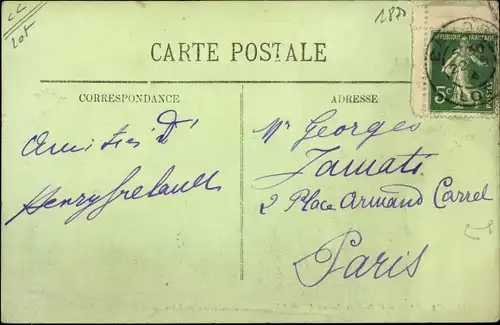 CC
Lot
1870
CARTE POSTALE
RÉPUBLIQUE FRANÇAISE
5c
POSTES
CORRESPONDANCE
ADRESSE
Amitiés D'
Henry
Mr Georges
Jamati
2 Place Armand Carrel
Paris